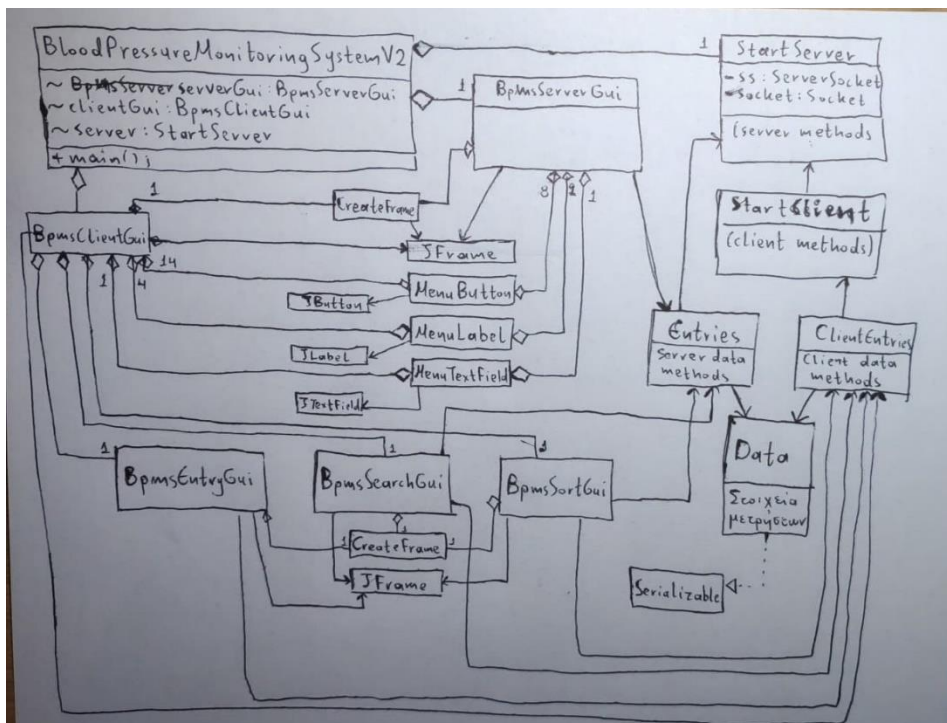 BloodPressureMonitoringSystemV2
~ BpmsServer serverGui: BpmsServerGui
~ clientGui: BpmsClientGui
~ server: StartServer
+ main();
1
StartServer
- ss: ServerSocket
- socket: Socket
(server methods
1
BpmsServerGui
StartClient
(client methods)
1
CreateFrame
8
2
1
BpmsClientGui
JFrame
14
1
4
MenuButton
JButton
MenuLabel
JLabel
MenuTextField
JTextField
Entries
Server data
methods
ClientEntries
Client data
methods
1
BpmsEntryGui
1
BpmsSearchGui
1
BpmsSortGui
Data
Στοιχεία
μετρήσεων
1
1
1
CreateFrame
JFrame
Serializable